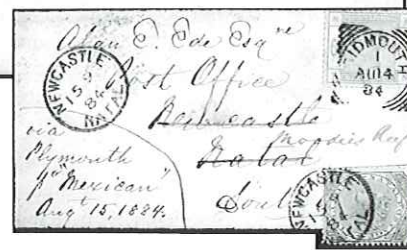 Alan E. Ede Esqre
Post Office
Newcastle
Natal
Moodies Reef
South
via
Plymouth
pr "Mexican"
Augt 15, 1884.
NEWCASTLE
15 9
84
NATAL
SIDMOUTH
1
AU 14
84
NEWCASTLE